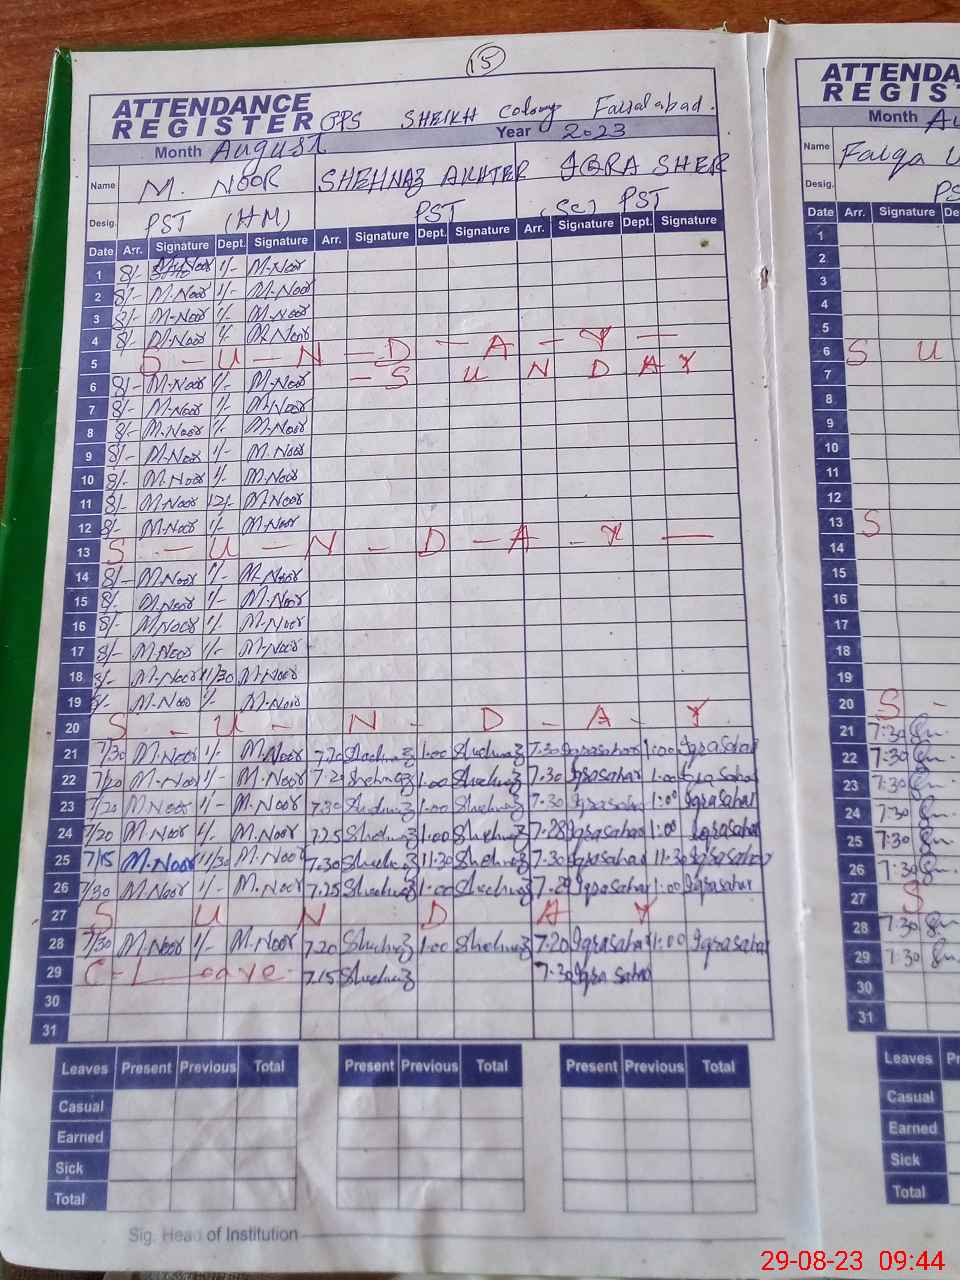 15
ATTENDANCE
REGISTER GPS SHEIKH Colony Faisalabad.
Month August Year 2023
Name M. NOOR SHEHNAZ AKHTER IQRA SHER
Desig. PST (HM) PST (SC) PST
Date Arr. Signature Dept. Signature Arr. Signature Dept. Signature Arr. Signature Dept. Signature
1 8/- M.Noor 1/- M.Noor
2 8/- M.Noor 1/- M.Noor
3 8/- M.Noor 1/- M.Noor
4 8/- M.Noor 1/- M.Noor
5 S - U - N - D - A - Y -
6 8/- M.Noor 1/- M.Noor - S U N D A Y
7 8/- M.Noor 1/- M.Noor
8 8/- M.Noor 1/- M.Noor
9 8/- M.Noor 1/- M.Noor
10 8/- M.Noor 1/- M.Noor
11 8/- M.Noor 12/- M.Noor
12 8/- M.Noor 1/- M.Noor
13 S - U - N - D - A - Y -
14 8/- M.Noor 1/- M.Noor
15 8/- M.Noor 1/- M.Noor
16 8/- M.Noor 1/- M.Noor
17 8/- M.Noor 1/- M.Noor
18 8/- M.Noor 11/30 M.Noor
19 8/- M.Noor 1/- M.Noor
20 S - U - N - D - A - Y
21 7/30 M.Noor 1/- M.Noor 7.20 Shehnaz 1.00 Shehnaz 7.30 Iqrasahar 1:00 Iqrasahar
22 7/20 M.Noor 1/- M.Noor 7.20 Shehnaz 1.00 Shehnaz 7.30 Iqrasahar 1:00 Iqrasahar
23 7/20 M.Noor 1/- M.Noor 7.30 Shehnaz 1.00 Shehnaz 7.30 Iqrasahar 1:00 Iqrasahar
24 7/20 M.Noor 1/- M.Noor 7.25 Shehnaz 1.00 Shehnaz 7.28 Iqrasahar 1:00 Iqrasahar
25 7/15 M.Noor 11/30 M.Noor 7.30 Shehnaz 11.30 Shehnaz 7.30 Iqrasahar 11.30 Iqrasahar
26 7/30 M.Noor 1/- M.Noor 7.25 Shehnaz 1.00 Shehnaz 7.29 Iqrasahar 1:00 Iqrasahar
27 S U N D A Y
28 7/30 M.Noor 1/- M.Noor 7.20 Shehnaz 1.00 Shehnaz 7.20 Iqrasahar 1:00 Iqrasahar
29 C-Leave 7.15 Shehnaz 7.30 Iqra Sahar
30
31
Leaves Present Previous Total Present Previous Total Present Previous Total
Casual
Earned
Sick
Total
Sig. Head of Institution
ATTENDA
REGIST
Month Au
Name Faiqa U
Desig. PS
Date Arr. Signature Dept.
1
2
3
4
5
6 S U
7
8
9
10
11
12
13 S
14
15
16
17
18
19
20 S -
21 7:30
22 7:30
23 7:30
24 7:30
25 7:30
26 7:30
27 S
28 7:30
29 7:30
30
31
Leaves Pr
Casual
Earned
Sick
Total
29-08-23 09:44